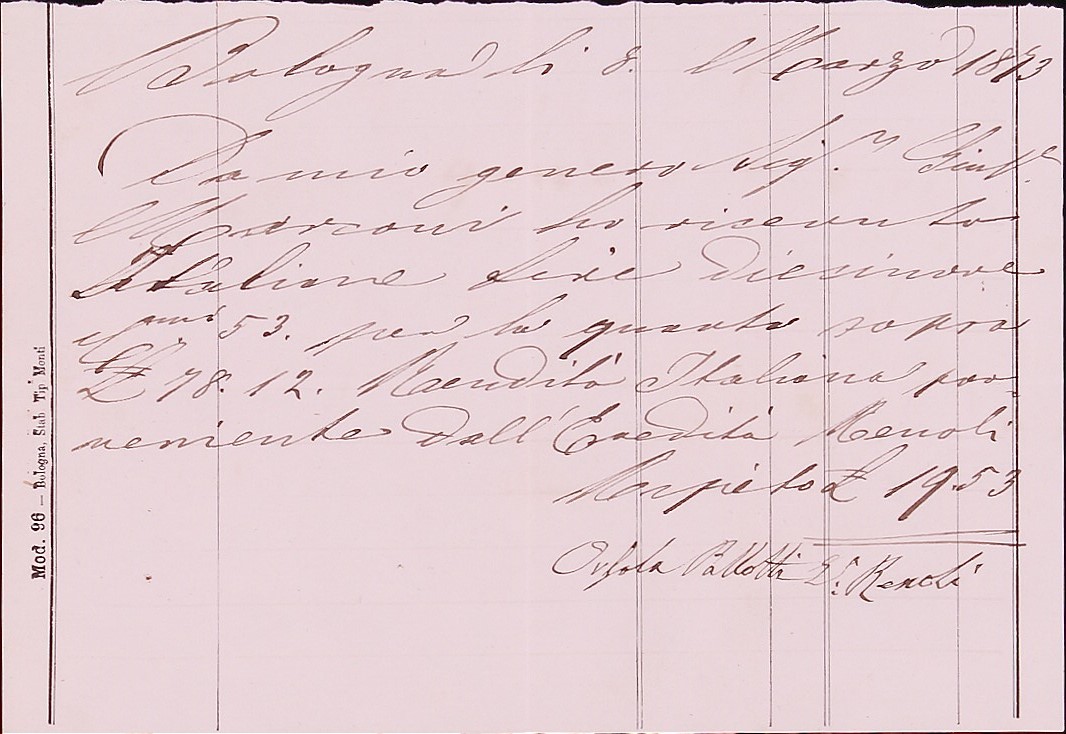 Bologna li 8. Marzo 1873
Da mio genero Sig.r Giusp.e
Marconi ho ricevuto
Italiane Lire diecinove
c.mi 53. per la quarta sopra
£ 78.12. Rendita Italiana pro-
veniente dall'Eredità Renoli
£ 19.53
Orsola Pallotti V.a Renoli
Mod. 96 — Bologna, Stab Tip Monti